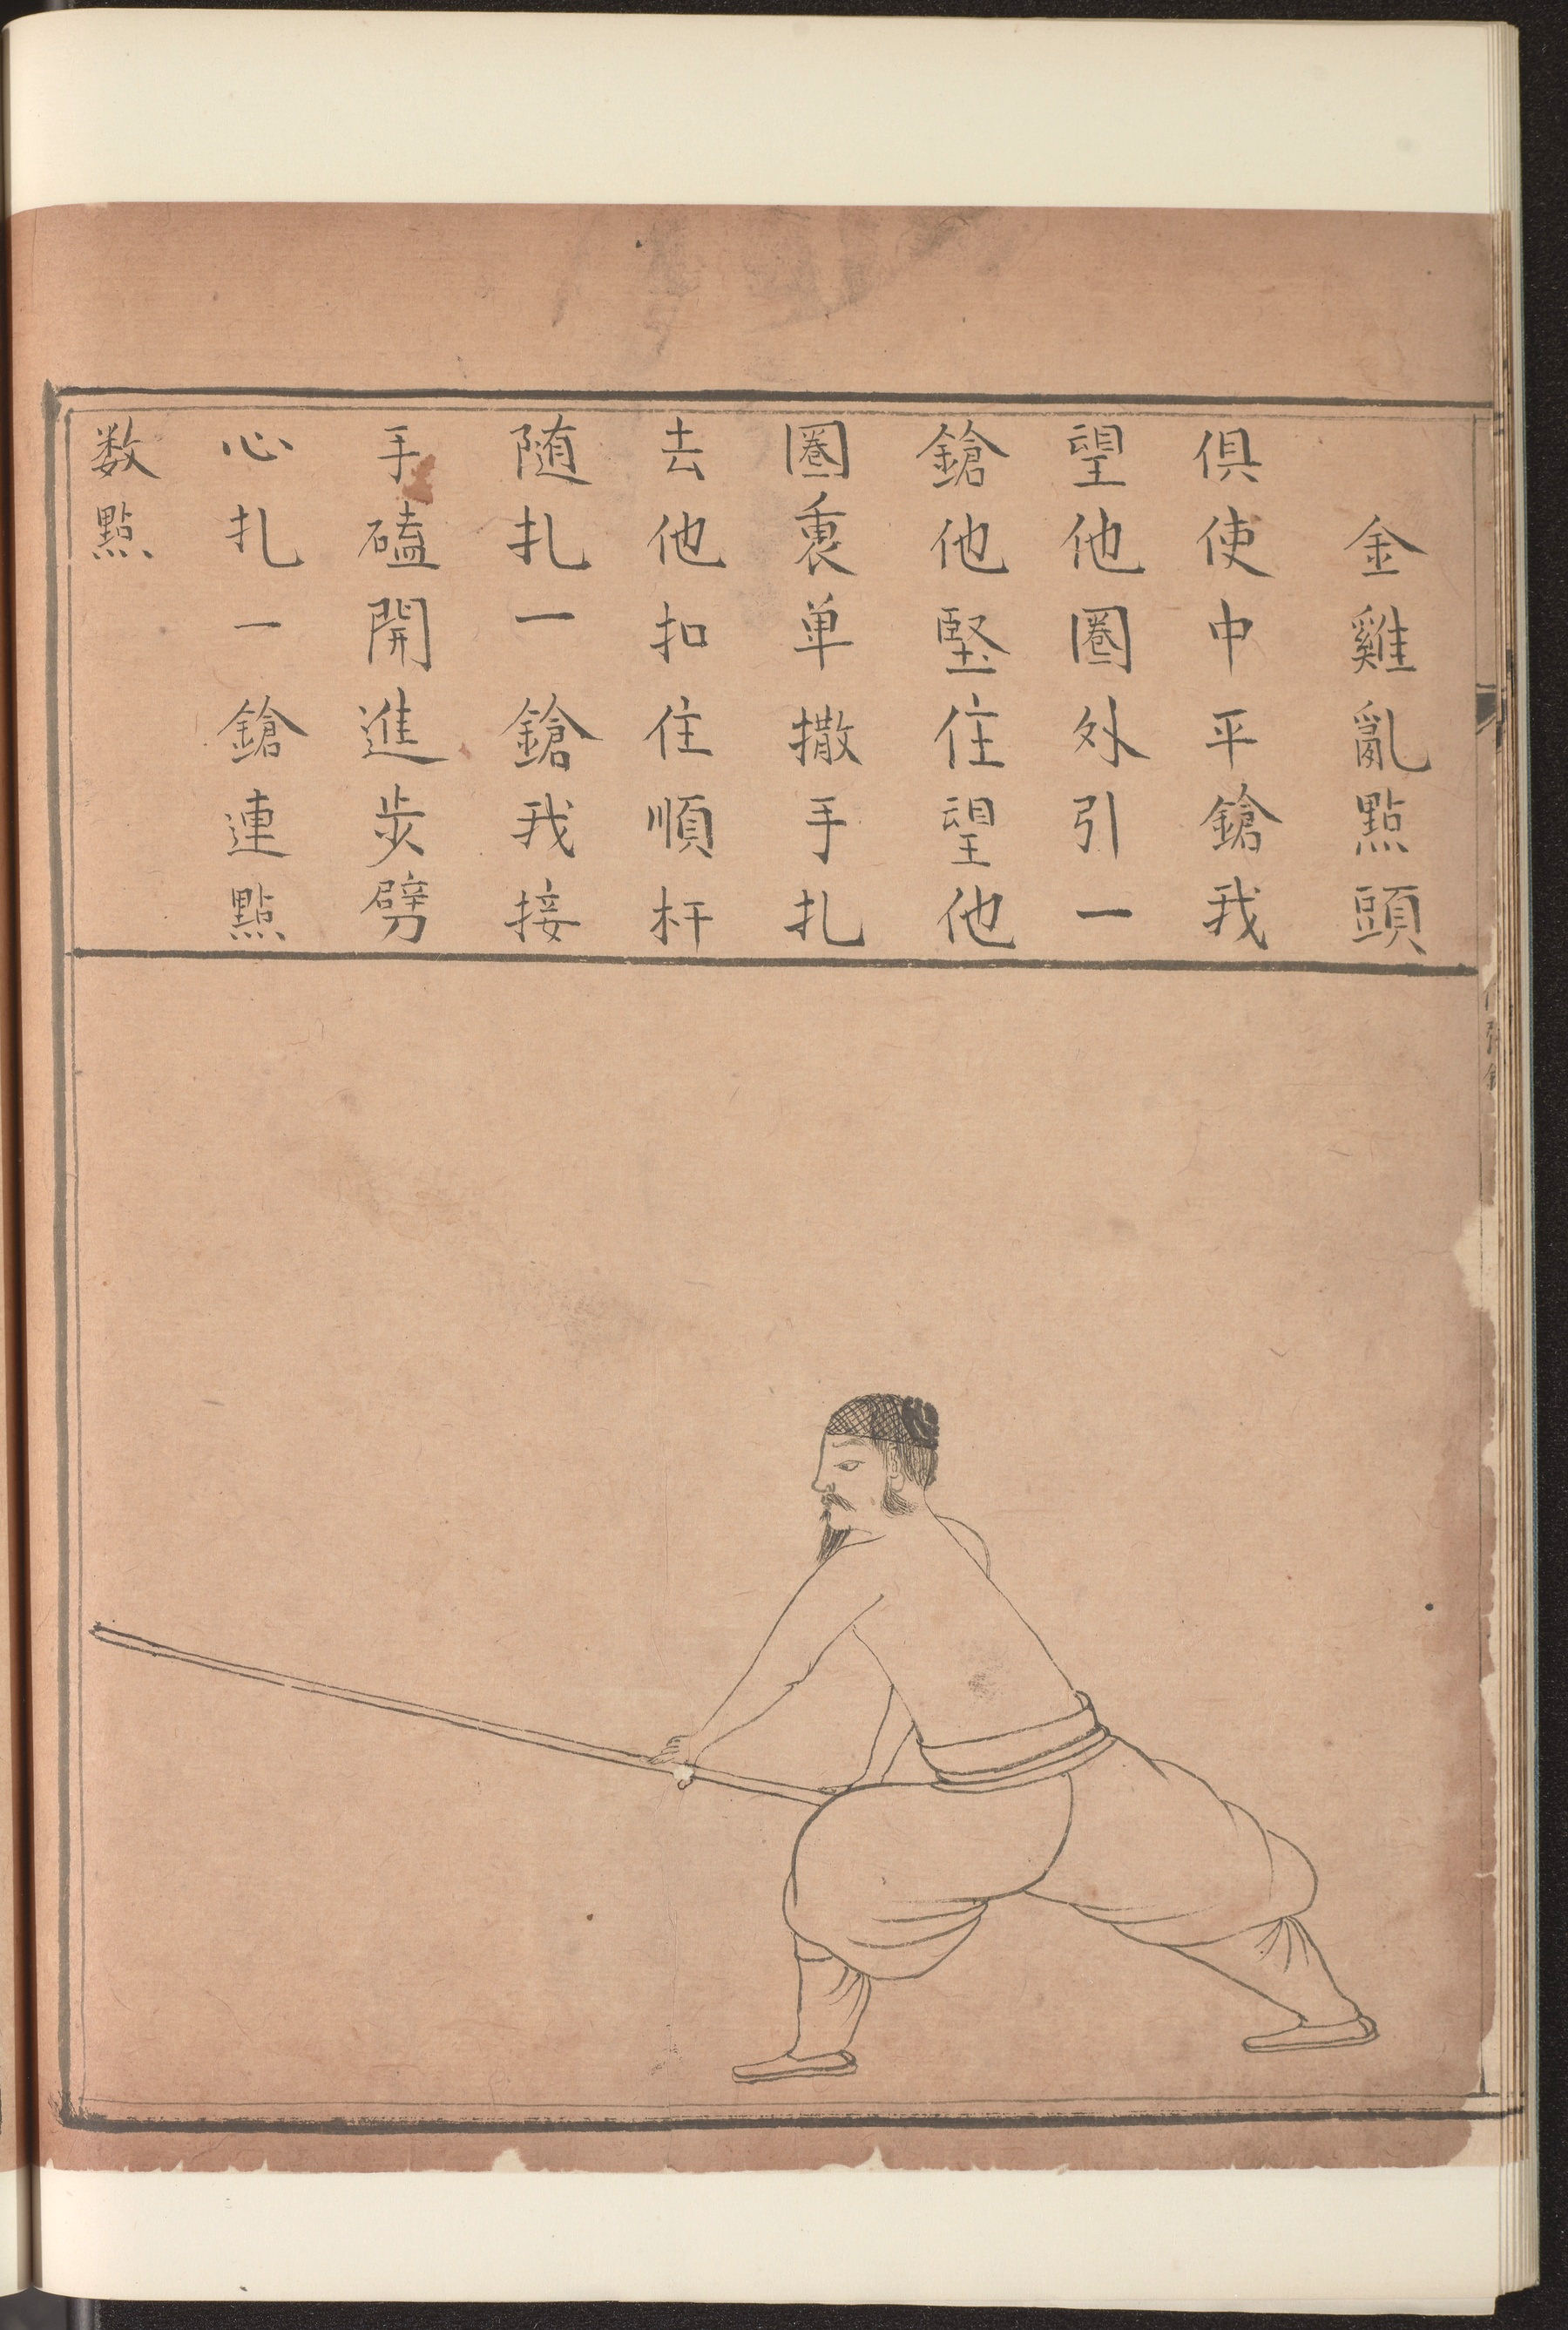 金雞亂點頭
俱使中平鎗我
望他圈外引一
鎗他堅住望他
圈裏单撒手扎
去他扣住順杆
随扎一鎗我接
手磕開進步劈
心扎一鎗連點
数點